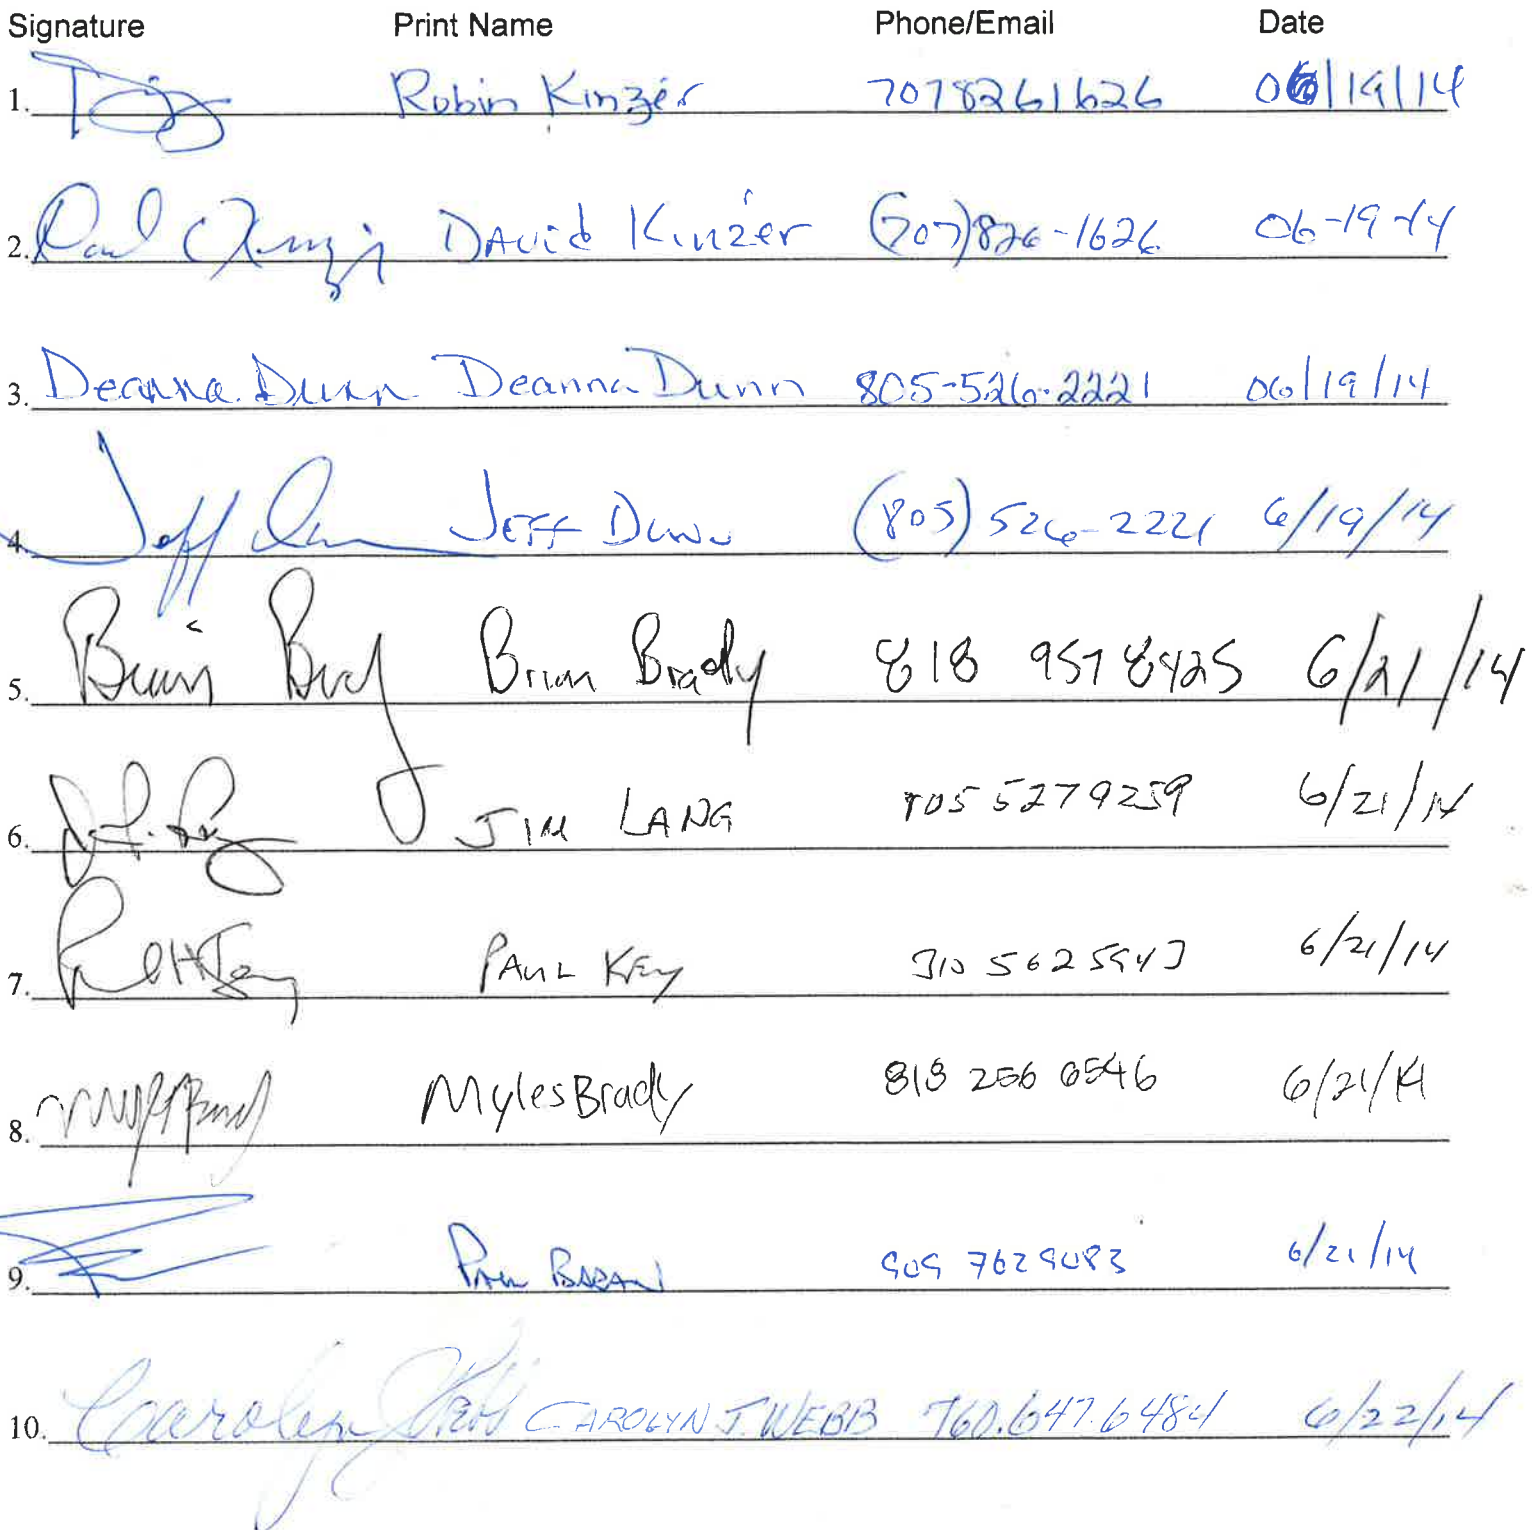 Signature Print Name Phone/Email Date
1. Robin Kinzer 7078261626 06/19/14
2. David Kinzer (707)826-1626 06-19-14
3. Deanna Dunn Deanna Dunn 805-526-2221 06/19/14
4. Jeff Dunn JEFF DUNN (805) 526-2221 6/19/14
5. Brian Brady Brian Brady 818 957 8425 6/21/14
6. JIM LANG 805 5279259 6/21/14
7. PAUL KEY 310 562 5943 6/21/14
8. Myles Brady 818 256 6546 6/21/14
9. PAUL 909 7629083 6/21/14
10. Carolyn J Webb CAROLYN J. WEBB 760.647.6484 6/22/14